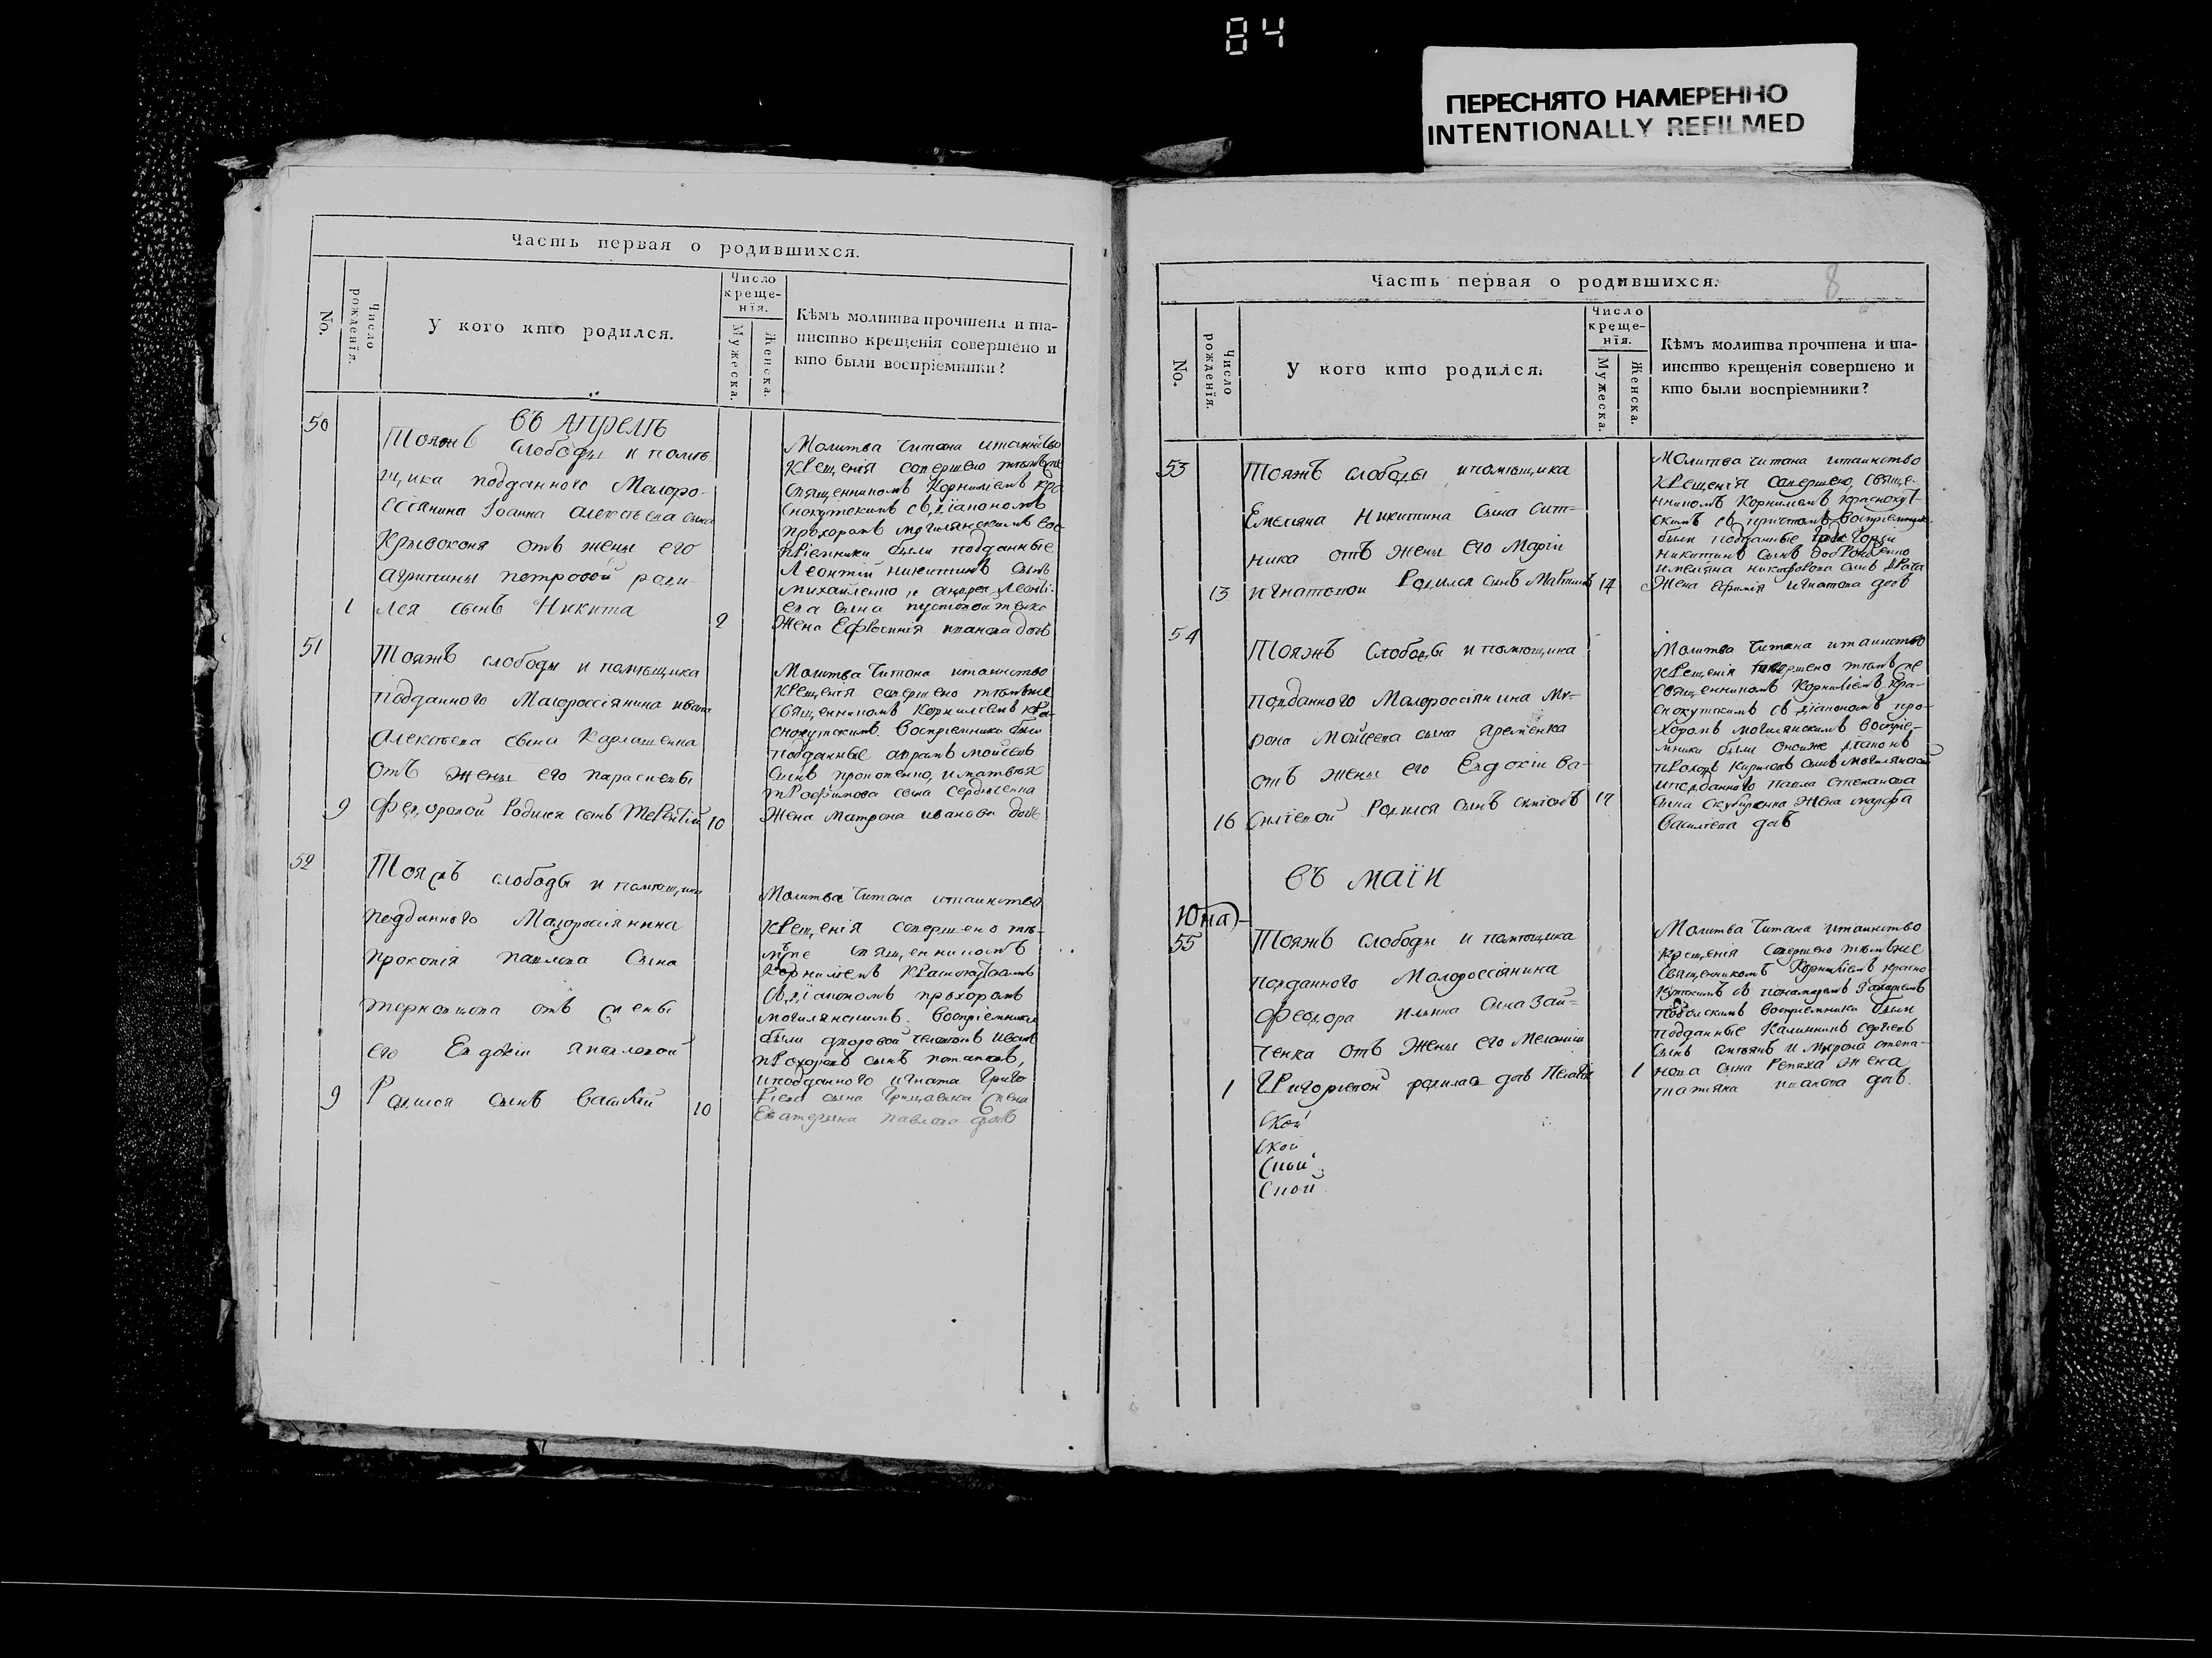 84
ПЕРЕСНЯТО НАМЕРЕННО
INTENTIONALLY REFILMED
Часть первая о родившихся.
No.
Число рожденія.
У кого кто родился.
Число креще-нія.
Мужеска.
Женска.
Кѣмъ молитва прочтена и та-
инство крещенія совершено и
кто были воспріемники?
въ Апрелѣ
50
Тояжъ слободы и помѣ
щика подданного Малоро-
ссіянина Іоанна Алексѣева сына
Кривоконя отъ жены его
Агрипины Петровой роди-
1
лся сынъ Никита
2
Молитва читана и таинство
крещенія совершено тѣмже
священникомъ Корниліемъ Кра
снокутскимъ съ діакономъ
Прохоромъ Могилянскимъ вос
пріемники были подданные
Леонтій Никитинъ сынъ
Михайленко и Андрея Леонті-
ева сына
жена Ефросинія Иванова дочь
51
Тояжъ слободы и помѣщика
подданного Малороссіянина Ивана
Алексѣева сына Карпашенка
отъ жены его Параскевы
9
Федоровой родился сынъ Терентій
10
Молитва читана и таинство
крещенія совершено тѣмже
священникомъ Корниліемъ Кра-
снокутскимъ. Воспріемники были
подданные Абрамъ Мойсеевъ
сынъ Прокопенко, и Матвѣя
Трофимова сына Сердюченка
жена Матрона Иванова дочь
52
Тояжъ слободы и помѣщика
подданного Малоросіянина
Прокопія Павлова сына
отъ жены
его Евдокіи Яковлевой
9
Родился сынъ Василій
10
Молитва читана и таинство
крещенія совершено тѣ-
мже священникомъ
Корниліемъ Краснокутскимъ
съ діакономъ Прохоромъ
Могилянскимъ. Воспріемники
были дворовой человѣкъ Иванъ
Прохоровъ сынъ Потаповъ,
и подданного Игната Григо
ріева сына Грищенка жена
Екатерина Павлова дочь
Часть первая о родившихся.
8
No.
Число рожденія.
У кого кто родился.
Число креще-нія.
Мужеска.
Женска.
Кѣмъ молитва прочтена и та-
инство крещенія совершено и
кто были воспріемники?
53
Тояжъ слободы и помѣщика
Емеліяна Никитина сына Сит-
ника отъ жены его Маріи
13
Игнатовой Родился сынъ Мартинъ
14
Молитва читана и таинство
крещенія совершено, свяще-
нникомъ Корниліемъ Краснокут-
скимъ съ причтомъ воспріемники
были подданные
Никитинъ сынъ
Имеліяна Никифорова сына
жена Ефимія Игнатова дочь
54
Тояжъ слободы и помѣщика
подданного Малороссіянина Ми-
рона Мойсеева сына Яременка
отъ жены его Евдокіи Ва-
16
силіевой Родился сынъ
17
Молитва читана и таинство
крещенія совершено тѣмже
священникомъ Корниліемъ Кра-
снокутскимъ съ діакономъ Про-
хоромъ Могилянскимъ воспріе-
мники были онойже діаконъ
Прохоръ Кириловъ сынъ Могилянскій
и подданного Павла Степанова
сына Скубиренка жена Марфа
Василіева дочь
въ маіи
55
Тояжъ слободы и помѣщика
подданного Малороссіянина
Феодора Ильина сына Зай-
ченка отъ жены его Меланіи
1
Григоріевой родилась дочь Пелагія
1
Молитва читана и таинство
крещенія совершено тѣмже
священникомъ Корниліемъ Красно
кутскимъ съ пономаремъ Захаріемъ
Подолскимъ воспріемники были
подданные Калинникъ Сергіевъ
сынъ и Мирона Степа-
нова сына Репяха жена
Татяна Иванова дочь.
ской
ской
ской
ской